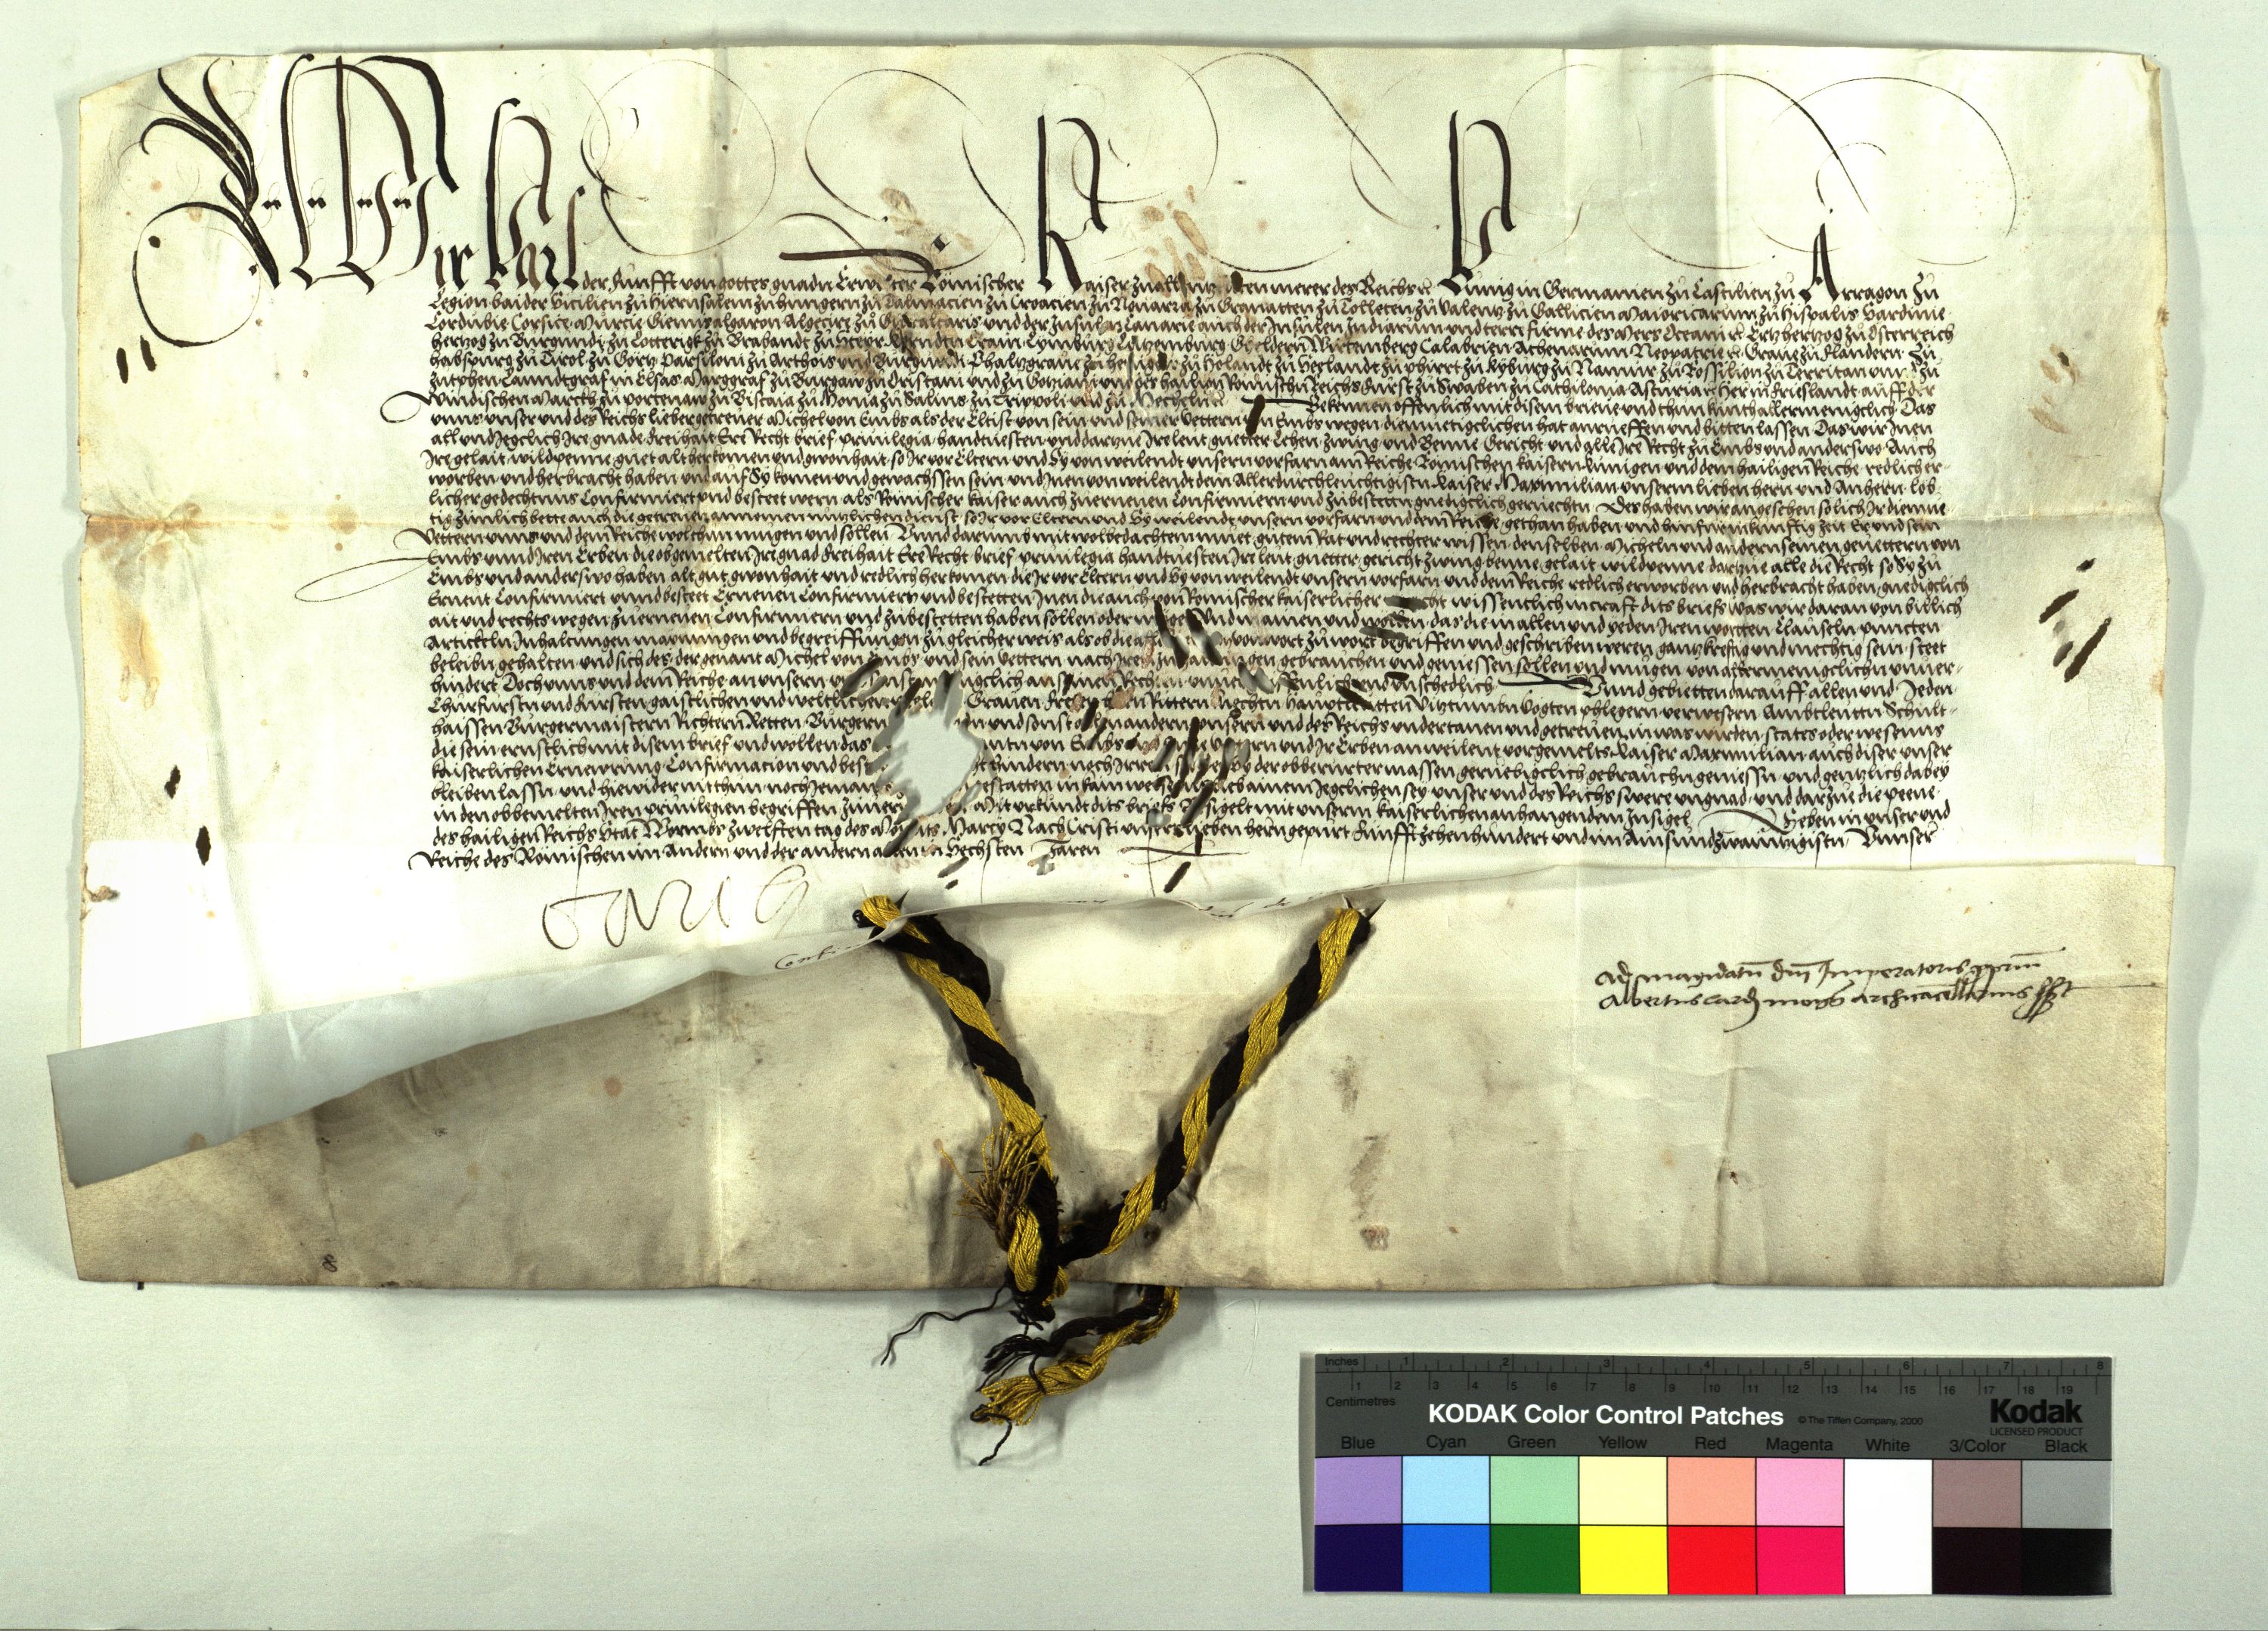 Wir Karl der Fünfft von gottes gnadn Erwelter Römischer Kaiser zu allen tzeiten merer des Reichs ꝛc Kunig in Germanien zu Castilien zu Arragon zu
Legion baider Sicilien zu Hierusalem zu Hungern zu Dalmacien zu Croacien zu Nauarra zu Granatten zu Tolleten zu Valentz zu Gallicien Maioricarum zu Hispalis Sardinie
Cordubie Corsice Murcie Giennis Algaron Algecire zu Gibraltaris und der Insulen Canarie auch der Insulen Indiarum und terre firme des Mers Oceani ꝛc Ertzhertzog zu Osterreich
Hertzog zu Burgundi zu Lotterigk zu Brabandt zu Steyr Kerndtn Crain Lymburg Lutzemburg Gheldern Wirtemberg Calabrien Athenarum Neopatrie ꝛc Graue zu Flandern zu
Habspurg zu Tirol zu Gortz Parsiloni zu Arthois und Burgundi Phaltzgraue zu Henigaw zu Holandt zu Seelandt zu Phirrt zu Kyburg zu Namur zu Rossilion zu Territan und zu
Zutphen Lanndtgraf in Elsas Marggraf zu Burgaw zu Oristani und zu Gotziani und des hailigen Romischn Reichs Furst zu Swaben zu Cathilonia Asturia ꝛc Her in Frieslandt auff der
Windischen Marckh zu Portenaw zu Biscaia zu Monia zu Salins zu Trippoli und zu Mecheln ꝛc Bekennen offenlich mit disem brieue und thun kunth allermeniglich Das
unns unser und des Reichs lieber getreuer Michel von Embs als der Eltist von sein und seiner Vettern von Embs wegen diemuetigclichen hat anrueffen und bitten lassen Das wir Inen
all und Jegclich Ire gnade Freihait Ere Recht brief priuilegia handtuesten und darzue Ire leut guetter Lehen zwing und Benne Gericht und alle Ire Recht zu Embs und anderswo Auch
Ire gelait wildpenne guet alt herkomen und gwonhait so Ir vor Eltern und Sy von weilendt unsern vorfarn am Reiche Romischen kaisern kunigen und dem hailigen Reiche redlich er
worben und herbracht haben und auf Sy komen und gewachssen sein und Inen von weilendt dem Allerdurchleuchtigistn Kaiser Maximilian unserm lieben hern und Anhern lob
licher gedechtnus Confirmiert und bestet wern als Romischer kaiser auch zuerneuen Confirmiern und zubestettn gnedigclich geruechtn Des haben wir angesehen solich Ir diemue
tig zimlich bette auch die getreuen annemen nutzlichen dienst so Ir vor Eltern und Sy weilendt unsern vorfarn und dem Reiche gethan haben und hinfur in kunfftig zeit Er und sein
Vettern unns und dem Reiche wol thun mugen und sollen Unnd darumb mit wolbedachtem muet gutem Rat und rechter wissen denselben Micheln und andern seinen geuettern von
Embs und Iren Erben die obgemelten Ire gnad Freihait Ere Recht brief priuilegia handtuesten Ire leut guetter gericht zwing benne gelait wildpenne darzue alle die Recht so Sy zu
Embs und anderswo haben alt gut gwonhait und redlich herkomen die Ir vor Eltern und Sy von weilendt unsern vorfarn und dem Reiche redlich erworben und herbracht haben gnedigclich
Ernent Confirmiert und besteet Erneuen Confirmiern und bestetten Inen die auch von Romischer kaiserlicher macht wissentlich in crafft dits briefs was wir daran von billich
ait und rechts wegen zuerneuen Confirmiern und zubestetten haben sollen oder mugen Und mainen und wollen das die in allen und yeden Iren wortten Clauseln puncten
Artickeln Inhaltungen mainungen und begreiffungen zu gleicher weis als ob die von wort zu wort begriffen und geschriben weren gantz krefftig und mechtig sein steet
beleibn gehalten und sich des der genant Michel von Embs und sein Vettern nach Iren gebrauchen und geniessen sollen und mugen von allermeniglichn unuer
hindert Doch unns und dem Reiche an unsern und sonst an seinen Rechten und unschedlich Unnd gebietten darauff allen und Jeden
Churfurstn und Fursten gaistlichen und weltlichen Grauen Freyen Rittern Knechtn Haubtleutten Vitztumbn Vogten phlegern verwesern Ambtleuttn Schult
haissen Burgermaistern Richtern Retten Burgern und sonst allen andern unsern und des Reichs undertanen und getreuen in was wirden states oder wesenns
die sein ernstlich mit disem brief und wollen das von Embs Vettern und Ir Erben an weilent vorgemelts Kaiser Maximilian auch diser unser
kaiserlichen Ernewrung Confirmacion und hindern noch Irren der obberurter massen geruebigclich gebrauchn geniessn und gentzlich dabey
bleiben lassn und hiewider nit thun noch Jemands gestatten in kain weise ainem Jegclichen sey unser und des Reichs swere ungnad und darzue die peene
in den obbemelten Iren priuilegien begriffen Mit urkundt dits briefs besigelt mit unserm kaiserlichen anhangendem Insigel Geben in unser und
des hailigen Reichs Stat Wormbs zwelfften tag des Monats Marcy Nach Cristi unsers lieben hern gepurt Funffzehenhundert und im Ainsundzwaintzigisten Unnser
Reiche des Romischen im Andern und der andern aller im Sechsten Jaren
Carolus
Ad mandatū dn̄i Imperatoris ppriū
Albertus Card mogn archicācellarius sst
Inches 1 2 3 4 5 6 7 8
Centimetres 1 2 3 4 5 6 7 8 9 10 11 12 13 14 15 16 17 18 19
KODAK Color Control Patches © The Tiffen Company, 2000 Kodak
LICENSED PRODUCT
Blue Cyan Green Yellow Red Magenta White 3/Color Black